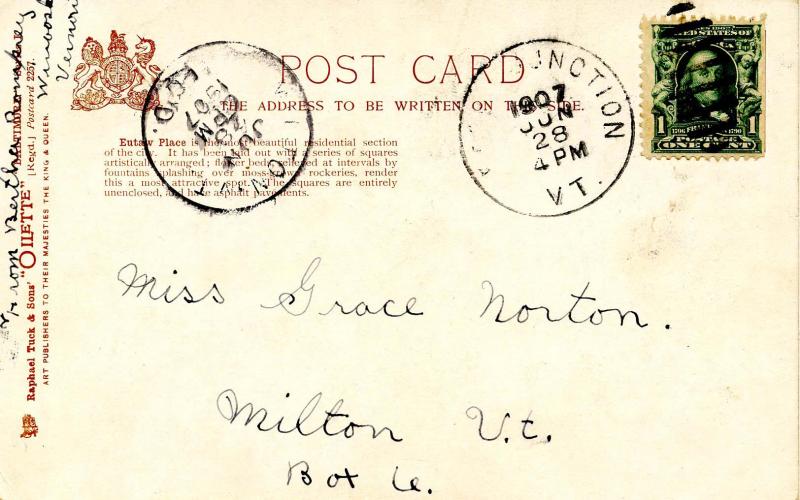 POST CARD
THE ADDRESS TO BE WRITTEN ON THIS SIDE.
Eutaw Place is the most beautiful residential section
of the city. It has been laid out with a series of squares
artistically arranged; flower beds relieved at intervals by
fountains splashing over moss-grown rockeries, render
this a most attractive spot. The squares are entirely
unenclosed, and have asphalt pavements.
JUNCTION
1907
JUN
28
4 PM
VT.
REC'D.
1907
PM
JUN
VT.
1 1
POSTAGE
ONE CENT
Miss Grace Norton.
Milton V.t.
Box 6.
From Bertha
Winooski
Vermont
Raphael Tuck & Sons' "OILETTE" [Regd.] Postcard 2257.
BALTIMORE
ART PUBLISHERS TO THEIR MAJESTIES THE KING & QUEEN.